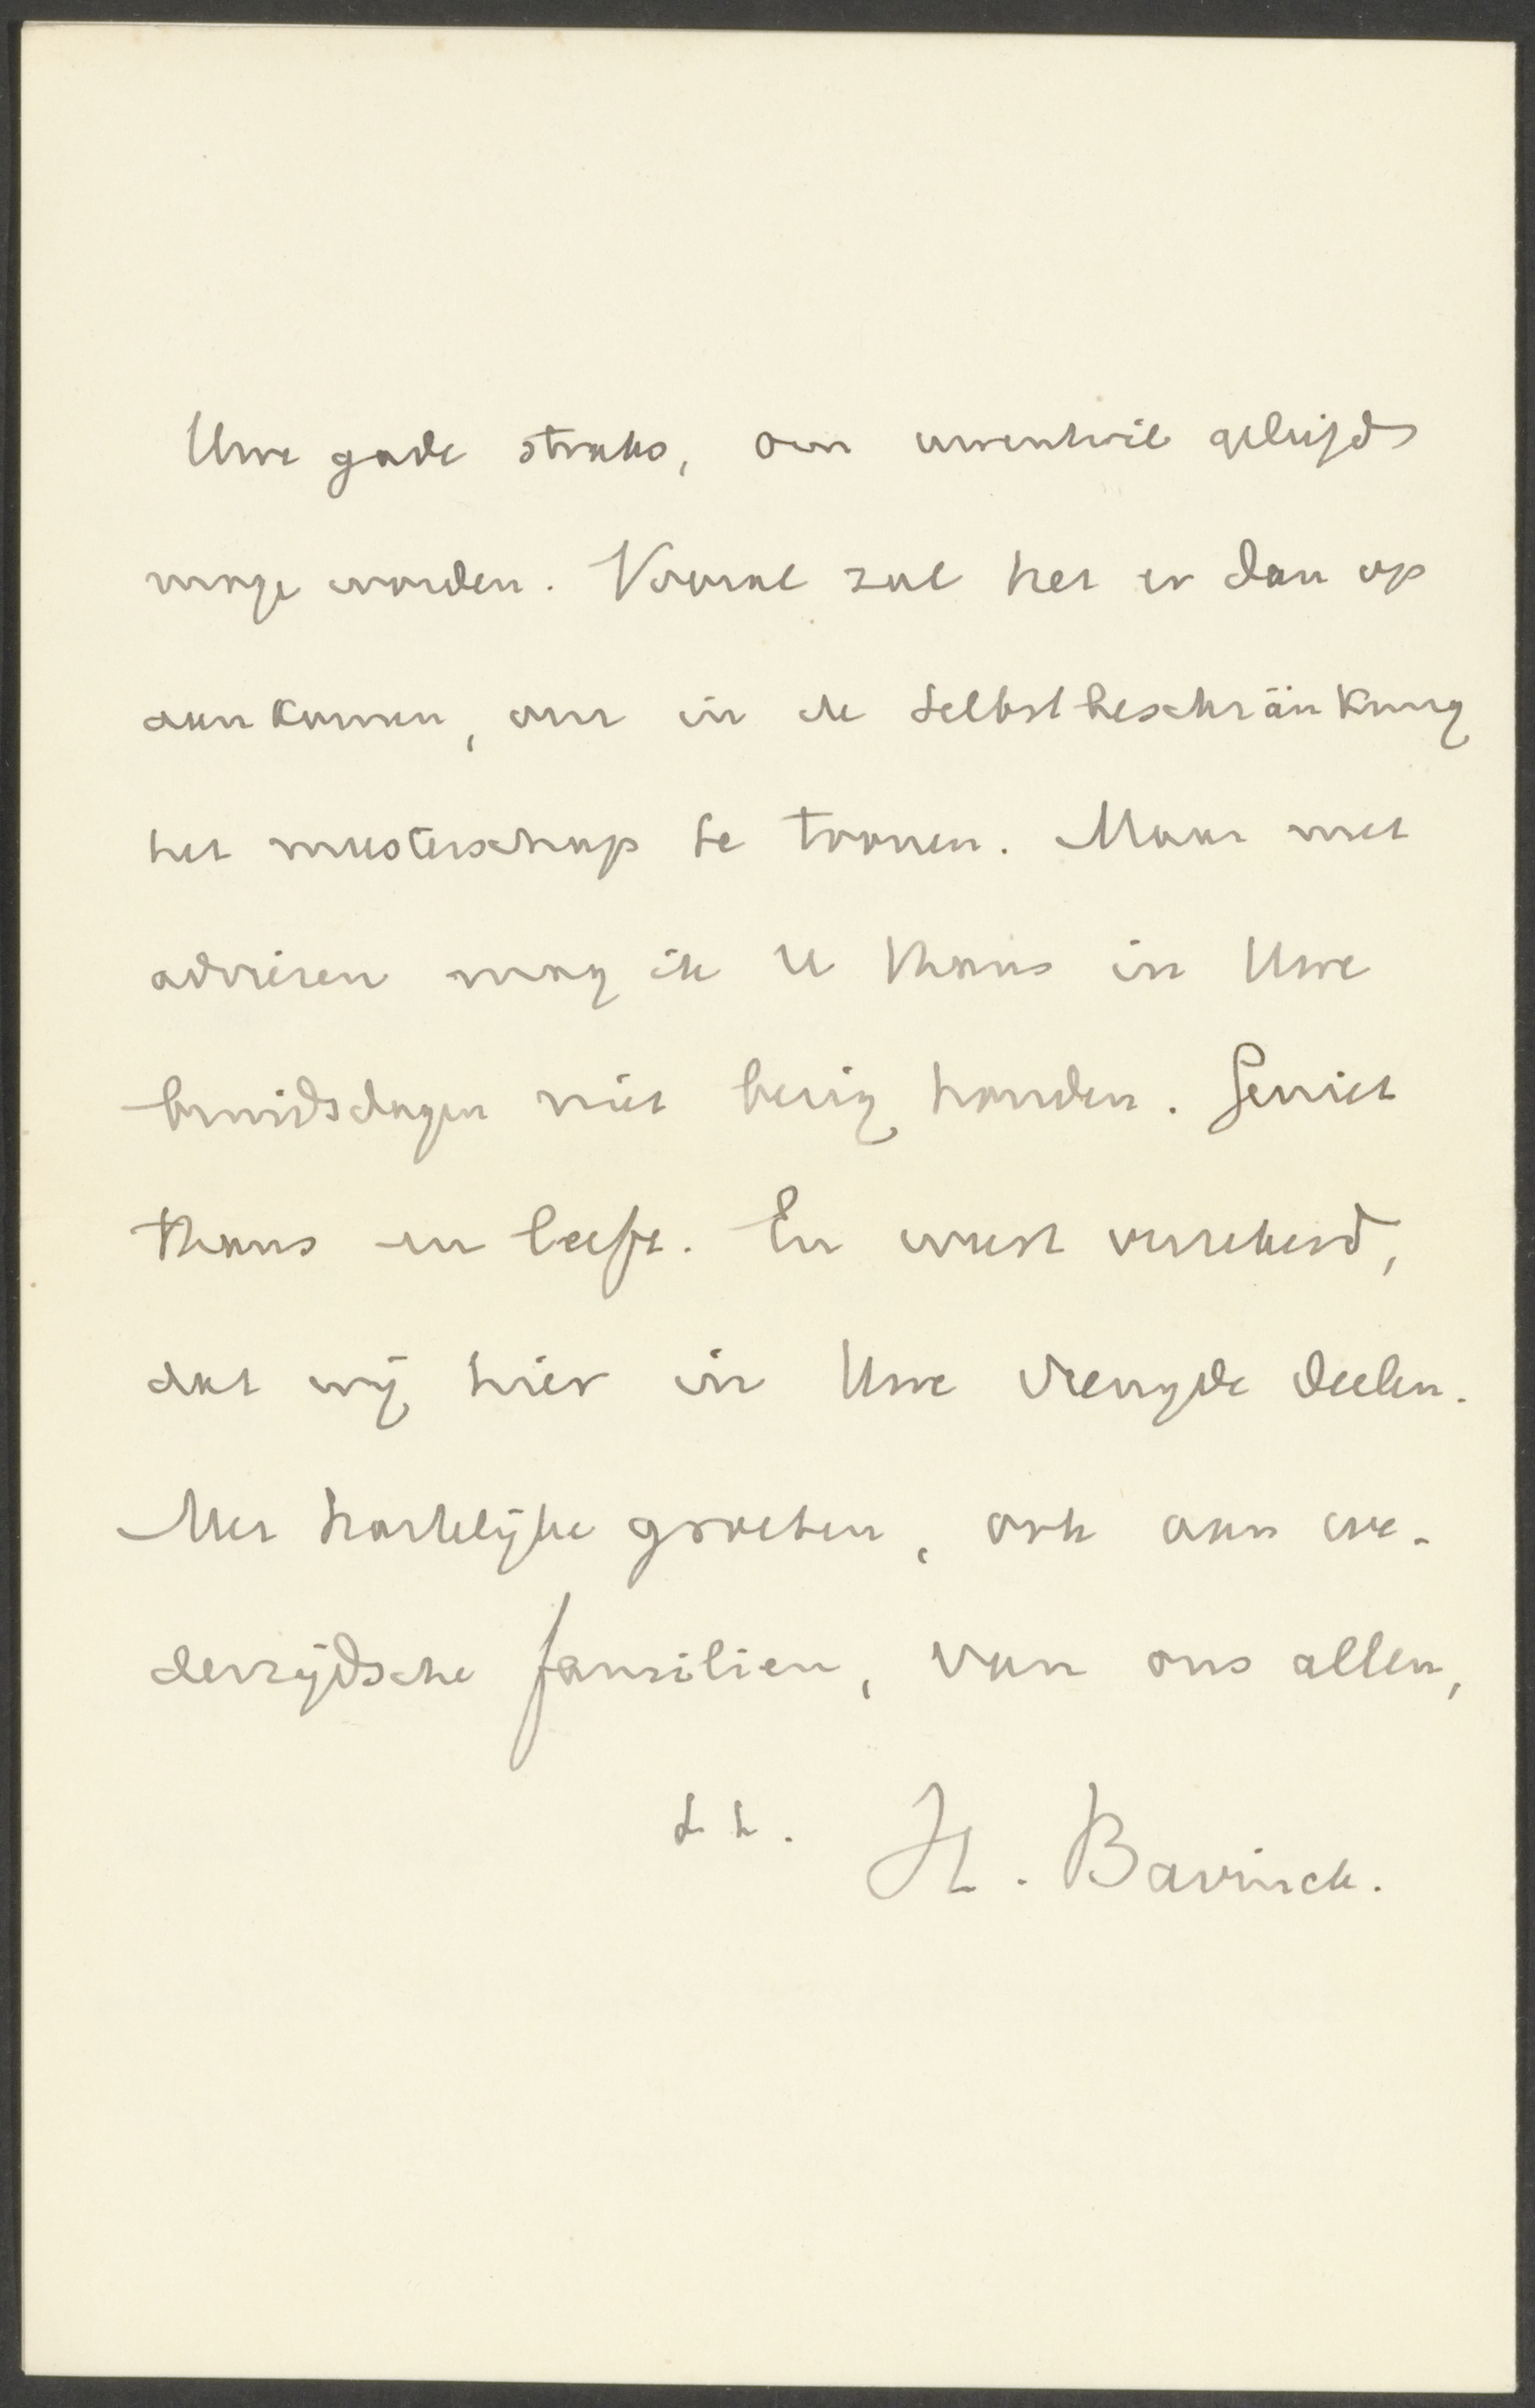 Uwe gade straks, om uwentwil
moge worden. Vooral zal het er dan op
aankomen, om in de Selbstbeschränkung
het meesterschap te toonen. Maar met
adviezen mag ik U thans in Uwe
bruidsdagen niet bezig houden. Geniet
thans en leeft. En weest verzekerd,
dat wij hier in Uwe vreugde deelen.
Met hartelijke groeten, ook aan we-
derzijdsche familien, van ons allen,
t. t. H. Bavinck.